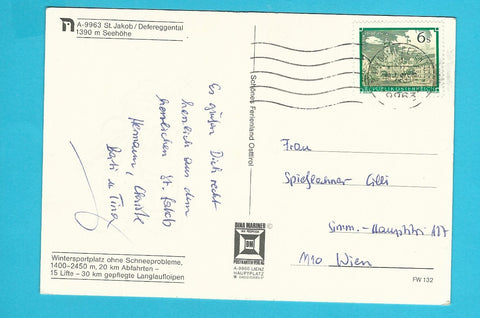 A-9963 St. Jakob/Defereggental
1390 m Seehöhe
Es grüßen Dich recht
herzlich aus dem
herrlichen St. Jakob
Hermann, Christl
u. Tina
Wintersportplatz ohne Schneeprobleme,
1400–2450 m, 20 km Abfahrten –
15 Lifte – 30 km gepflegte Langlaufloipen
Schönes Ferienland Osttirol
DINA MARINER
POSTKARTENVERLAG
A-9900 LIENZ
HAUPTPLATZ
6s
REPUBLIK ÖSTERREICH
9963
Frau
Cilli
Simm.-Hauptstr. 117
1110 Wien
FW 132